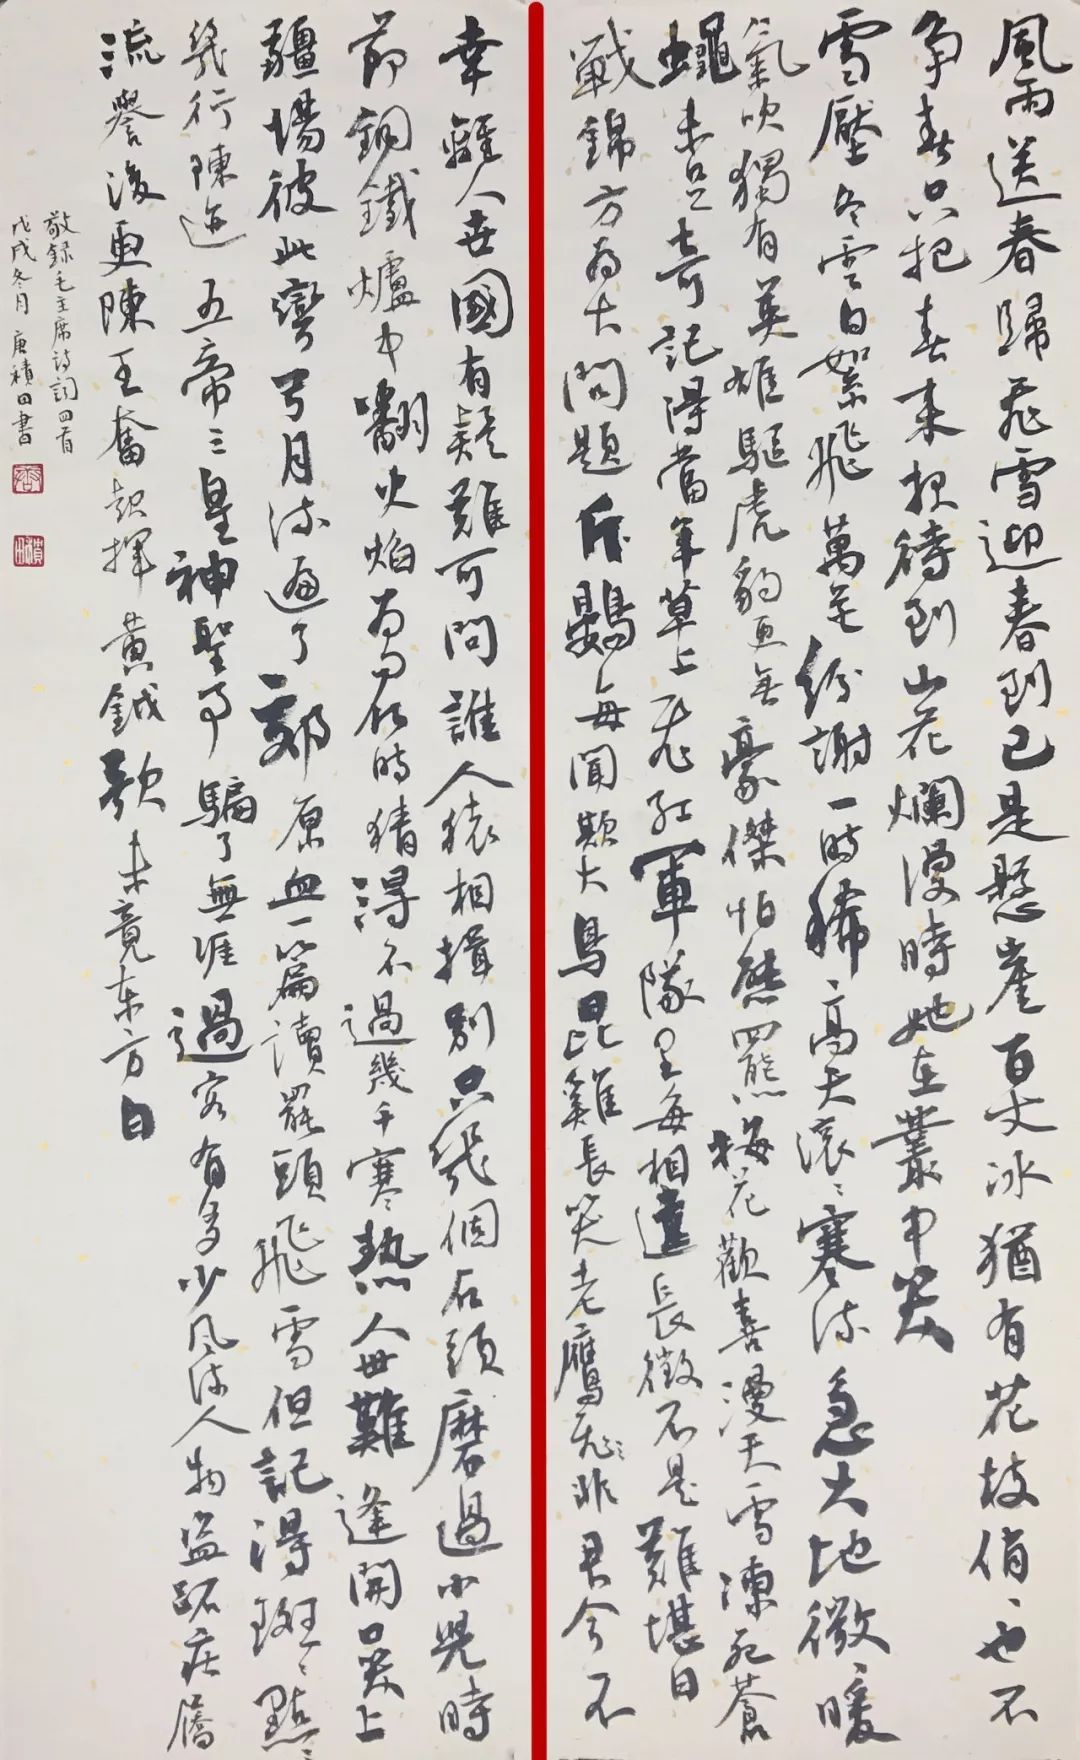 風雨送春歸飛雪迎春到已是懸崖百丈冰猶有花枝俏、也不
争春只把春来报待到山花爛漫時她在叢中笑
雪壓冬雲白絮飛萬花纷謝一時稀、高天滚、寒流急大地微、暖
氣吹獨有英雄驅虎豹更無豪傑怕熊羆梅花歡喜漫天雪凍死蒼
蠅未足奇記得當年草上飛红軍隊里每相違長徵不是難堪日
戰錦方為大問題斥鷃每聞欺大鳥昆雞長笑老鷹飛、非君今不
幸離人世國有疑難可問誰人猿相揖别只幾個石頭磨過小兒時
節銅鐵爐中翻火焰為問何時猜得不過幾千寒熱人世難逢開口笑上
疆場彼此彎弓月流遍了郊原血一篇讀罷頭飛雪但記得斑、點、
幾行陳迹五帝三皇神聖事騙了無涯過客有多少風流人物盗跖莊屩
流譽後更陳王奮起揮黄鉞歌未竟東方白
敬録毛主席詩詞四首
戊戌冬月 唐積田書